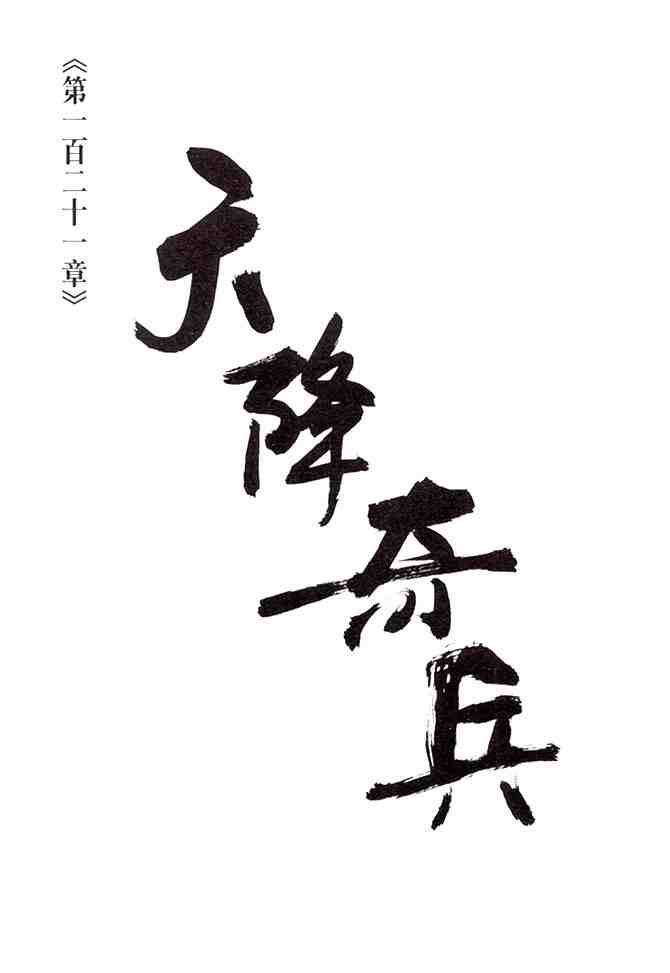 《第一百二十一章》
天降奇兵